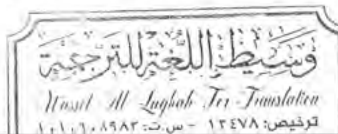 وسيط اللغة للترجمة
Wassit Al Lughah For Translation
ترخيص: ١٣٤٧٨ - س.ت: ١٠١٠٦٠٨٩٨٢